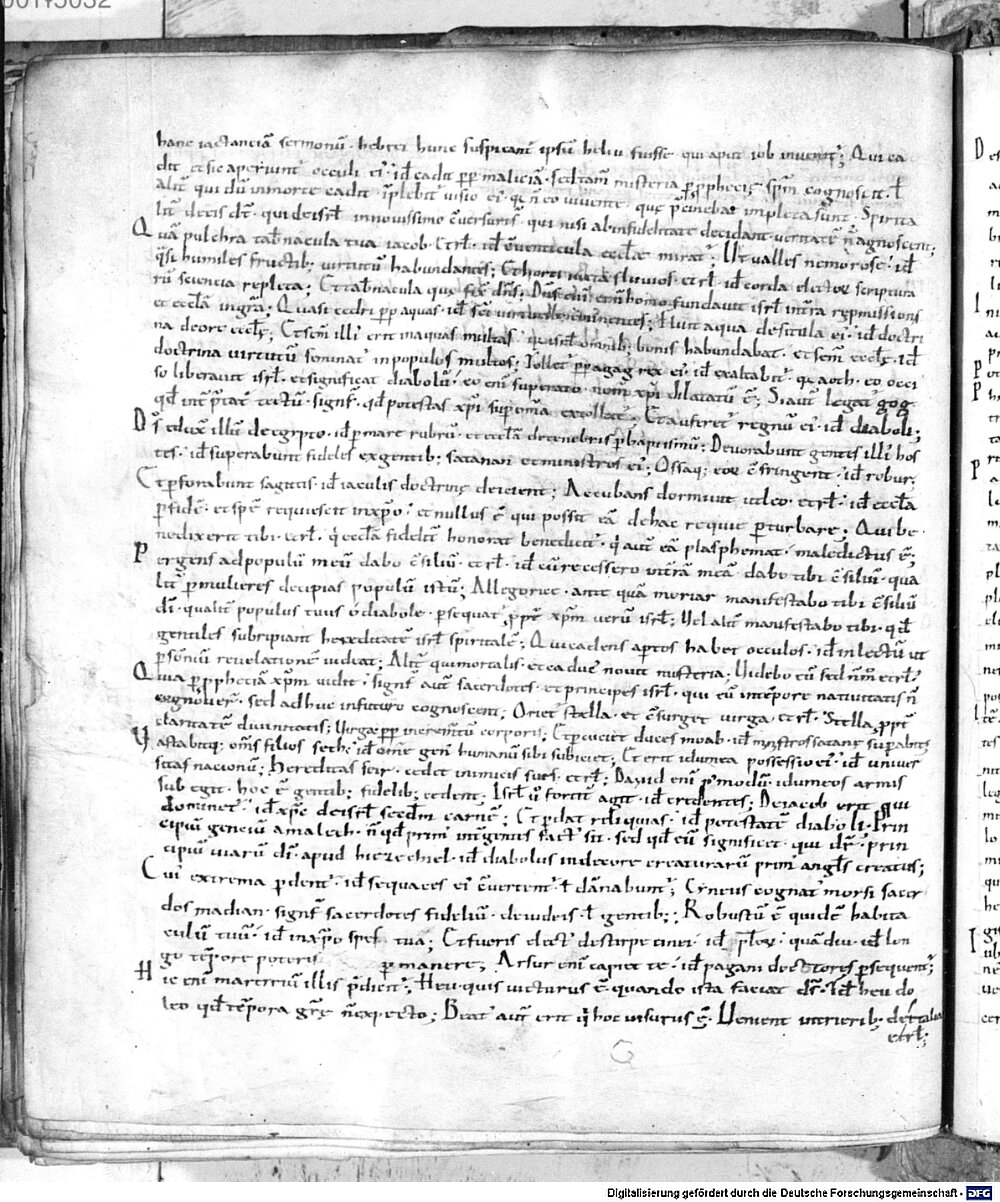 hanc iactanciā sermonū · hebrei hunc suspicant ipsū heliu fuisse · qui apũt iob inuenit᷑; Qui ca
dit et sic aperiunt occuli ei᷒ · id ÷ cadit pp maliciā · sed tam misteria p prophecis spm̄ cognoscit. ł
alit̄ qui dū in morte cadit īplebit᷑ uisio ei᷒ · qn̄ eo uiuente · quę p̄cinebat impleta sunt · Spirita
lit̄ de eis dr̄ · qui de isrł in nouissimo c̄uersuris · qui nisi ab infidelitate decidant ueritatē n̄ agnoscent;
Quā pulchra tab̄nacula tua iacob · et rł · id c̄uenticula ecclę mirat᷑; Ut ualles nemorose · id
q̄si humiles fructib; uirtutū habundantes; Et horti iuxta fluuios · et rł · id corda electoꝝ scriptura
rū sciencia repleta; Et tab̄nacula que fix̄ dn̄s; Dn̄s enī et n̄ homo fundauit isrł in tra repmissionis
et ecclā in gr̄a; Quasi cedri pp aquas · id sc̄i uirtutib; eminentes; Fluit aqua de situla ei᷒ · id doctri
na de ore ecclę; Et sem̄ illi erit in aquas multas · quisrł omnib; bonis habundabat · et sem̄ ecclę · id
doctrina uirtutū seminat᷑ in populos multos; Tollet᷑ pp agag rex ei᷒ · id exaltabit᷑ · qr̄ aoth · eo occi
so liberauit isrł · et significat diabolū · eo enī superato nom̄ xpi dilatatū ē; Si aut̄ legat᷑ gog
qd̄ int̄p̄tat᷑ tectū · signf̄ · qd̄ potestas xpi sup om̄ia extollet᷑ · Et auferet᷑ regnū ei᷒ · id diaboli;
Dς̄ eduxit illū de egypto · id p mare rubrū · et ecclā de tenebris p baptismū; Deuorabunt gentes illi hos
tes · id superabunt fideles ex gentib; satanan et ministros ei᷒; Ossaq; eoꝝ c̄fringent · id robur;
Et pforabunt sagittis · id iaculis doctrinę deicient; Accubans dormiuit ut leo · et rł · id ecclā
p fidē · et spē requiescit in xpo · et nullus ē qui possit eā de hac requie pturbare; Qui be
nedixerit tibi · et rł · q̄ ecclā fidelit̄ honorat benedict᷒ · q̄ aut̄ eā plasphemat · maledictus ē;
Pergens ad populū meū dabo c̄siliū · et rł · id cū recessero in t̄rā meā · dabo tibi c̄siliū · qua
lit̄ p mulieres decipias populū istū; Allegorice · ante quā moriar manifestabo tibi c̄siliū
dī · qualit̄ populus tuus o diabole · psequat᷑ ppr̄ xpm̄ uerū isrł; Uel alit̄ manifestabo tibi · qd̄
gentiles subripiant hereditatē isrł spiritalē; Qui cadens aptos habet occulos · id in lectū ut
p somniū reuelationē uideat; Alit̄ qui mortalis · et caduc᷒ nouit misteria; Uidebo eū sed n̄ m̊ · et rł
Quia p prophetiā xpm̄ uidit · signf̄ aut̄ sacerdotes · et principes isrł · qui eū in tēpore natiuitatis n̄
cognouer̄ · sed adhuc in futuro cognoscent; Oriet᷑ stella · et c̄surget uirga · et rł · Stella ppt̄
claritatē diuinitatis; Uirga pp incrementū corporis; Et pcuciet duces moab · id ministros satanę supabit;
Uastabitq; oms̄ filios seth · id om̄e gen᷒ humanū sibi subiciet; Et erit idumea possessio ei᷒ · id uniuer
sitas nacionū; Hereditas seir · cedet inimicis suis · et rł; Dauid enī p̄ modū idumeos armis
subegit · hoc ē gentib; fidelib; cedent; Isrł u͛ fortit̄ agit · id credentes; De iacob erit qui
dominet᷑ · id xpc de isrł scd̄m carnē; Et pdat reliquias · id potestatē diaboli · Prin
cipiū genciū amalech · n̄ qd̄ prim᷒ int̄ gentes fact᷒ sit · sed qd̄ eū significet · qui dr̄ prin
cipiū uiarū dī · apud hiezechiel · id diabolus in decore creaturarū prim᷒ angłs creatus;
Cui᷒ extrema pdent᷑ · id sequaces ei᷒ c̄uertent᷑ · ł dānabunt᷑; Cyneus cognat᷒ morsi sacer
dos madian · signf̄ sacerdotes fideliū · de iudeis · ł gentib; Robustū ē quidē habita
culū tuū · id in xpo spes tua; Et si fueris elect᷒ de stirpe cinei · id · quādiu · id lon
go tēpore poteris pmanere; Assur enī capiet te · id pagani doctores psequent᷑;
Hic enī martiriū illis p̄dicit᷑; Heu quis uicturus ē quando ista faciat ds̄ · Id heu do
leo qd̄ tēpora gr̄ę n̄ expecto; Beat᷒ aut̄ erit q̄ hoc uisurus ē; Uenient in trierib; de italia
et rł;